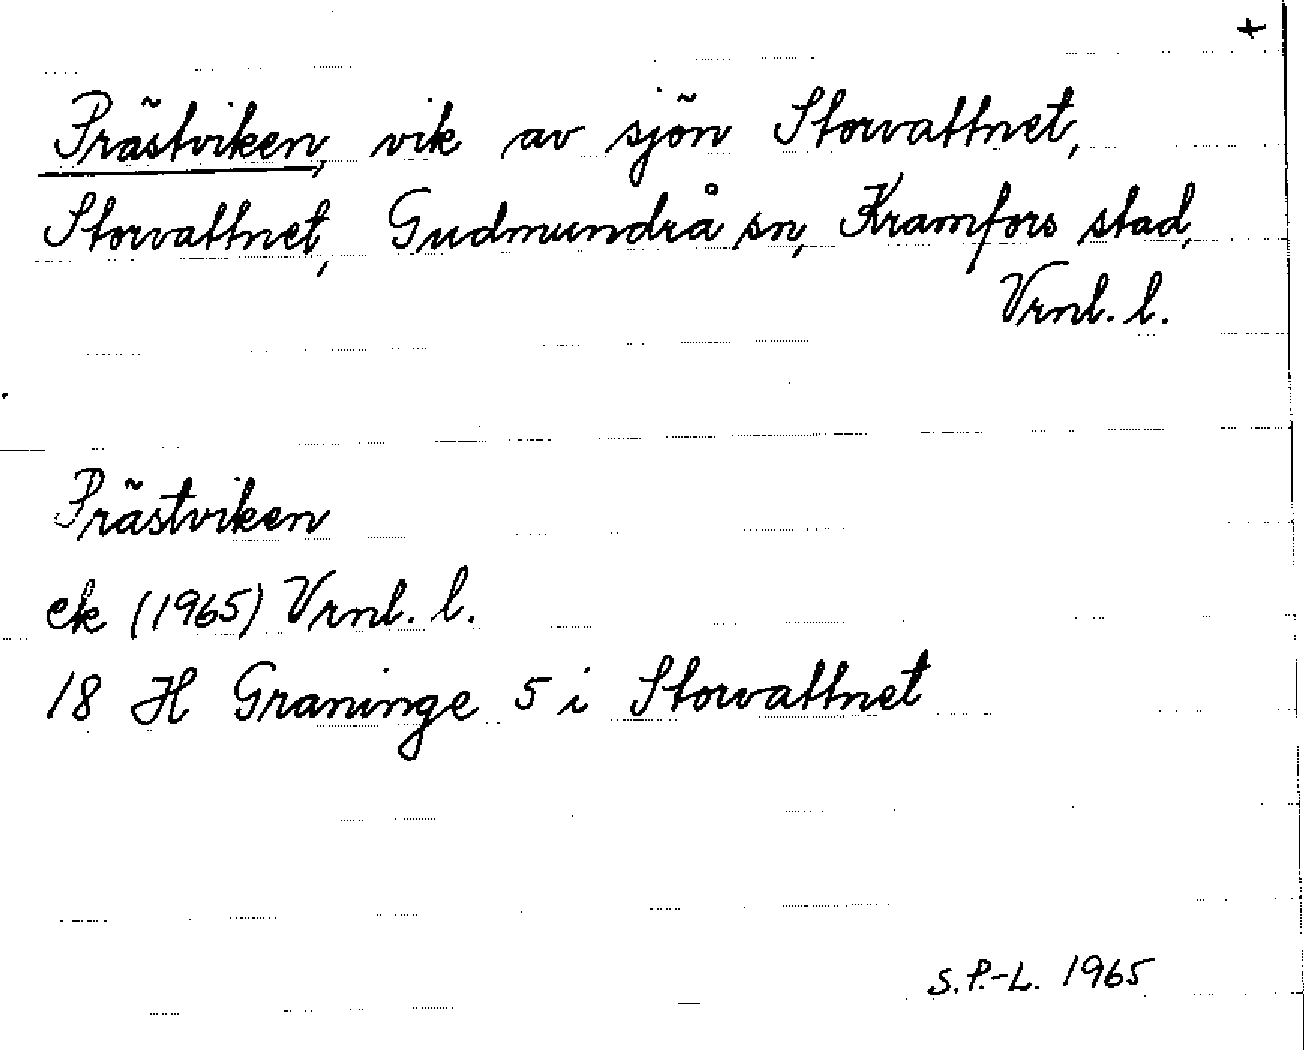 +
Prästviken, vik av sjön Storvattnet,
Storvattnet, Gudmundrå sn, Kramfors stad,
Vrnl. l.
Prästviken
ek (1965) Vrnl. l.
18 H Graninge 5 i Storvattnet
S.P.-L. 1965